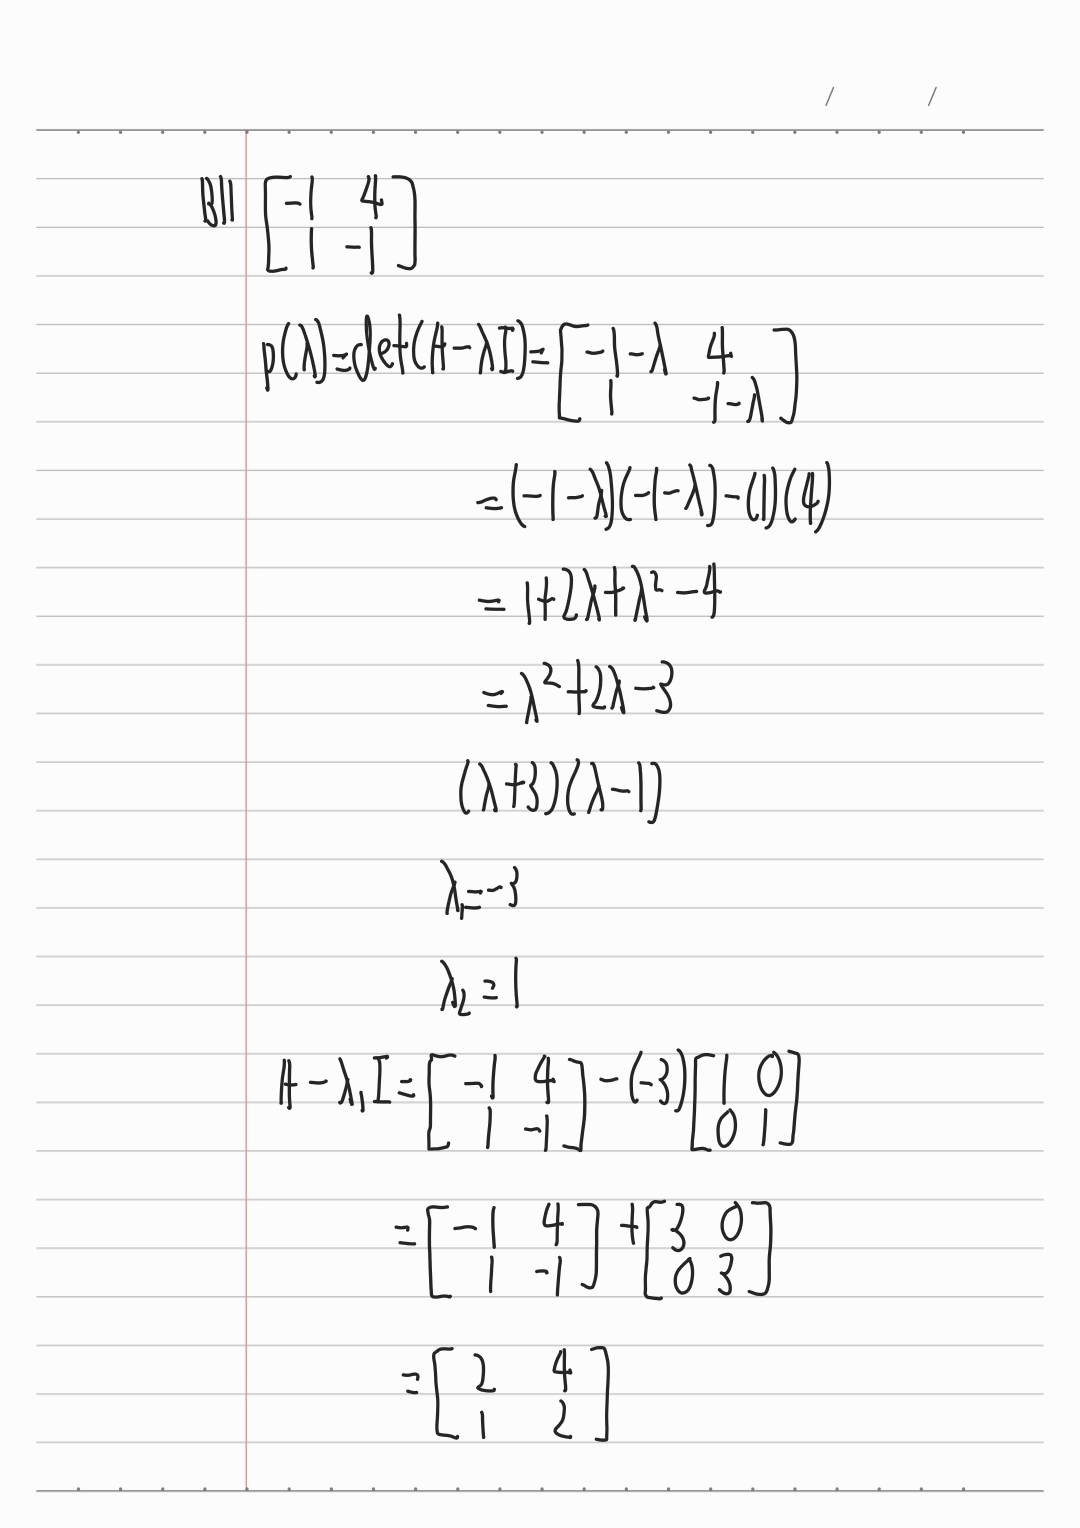 B11 [-1 4
1 -1]
p(λ)=det(A-λI)=[-1-λ 4
1 -1-λ]
=(-1-λ)(-1-λ)-(1)(4)
=1+2λ+λ²-4
=λ²+2λ-3
(λ+3)(λ-1)
λ₁=-3
λ₂=1
A-λ₁I=[-1 4
1 -1]-(-3)[1 0
0 1]
=[-1 4
1 -1]+[3 0
0 3]
=[2 4
1 2]